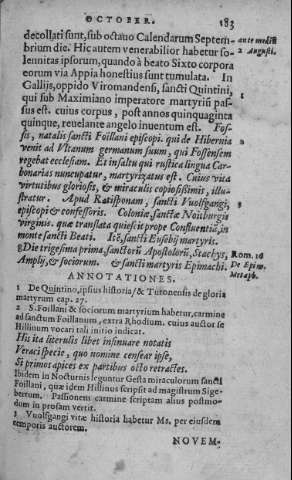 OCTOBER. 183
decollati sunt, sub octauo Calendarum Septem- ante mediũ
brium die. Hic autem venerabilior habetur so- 2 Augusti.
lennitas ipsorum, quando à beato Sixto corpora
eorum via Appia honestius sunt tumulata. In
Gallijs, oppido Viromandensi, sancti Quintini,
qui sub Maximiano imperatore martyriũ pas-
sus est. cuius corpus, post annos quinquaginta
quinque, reuelante angelo inuentum est. Fos-
sis, natalis sancti Foillani episcopi. qui de Hibernia
venit ad Vltanum germanum suum, qui Fossensem
regebat ecclesiam. Et in saltu qui rustica lingua Car-
bonarias nuncupatur, martyrizatus est. Cuius vita
virtutibus gloriosis, & miraculis copiosissimis, illu-
stratur. Apud Ratisponam, sancti Vuolfgangi,
episcopi & confessoris. Coloniæ, sanctæ Noitburgis
virginis. quæ translata quiescit prope Confluentiã, in
monte sancti Beati. Itẽ, sancti Eusebij martyris.
Die trigesima prima, sanctorũ Apostolorũ, Stachys, Rom. 16
Amplij, & sociorum. & sancti martyris Epimachi. De Epim.
Metaph.
ANNOTATIONES.
1 De Quintino, ipsius historia, & Turonensis de gloria
martyrum cap. 27.
2 S. Foillani & sociorum martyrium habetur, carmine
ad sanctum Foillanum, extra Rhodium. cuius auctor se
Hillinum vocari tali initio indicat.
His ita literulis libet insinuare notatis
Veraci specie, quo nomine censear ipse,
Si primos apices ex partibus octo retractes.
Ibidem in Nocturnis leguntur Gesta miraculorum sancti
Foillani, quæ idem Hillinus scripsit ad magistrum Sige-
bertum. Passionem carmine scriptam alius postmo-
dum in prosam vertit.
3 Vuolfgangi vitæ historia habetur Ms. per eiusdem
temporis auctorem.
NOVEM-